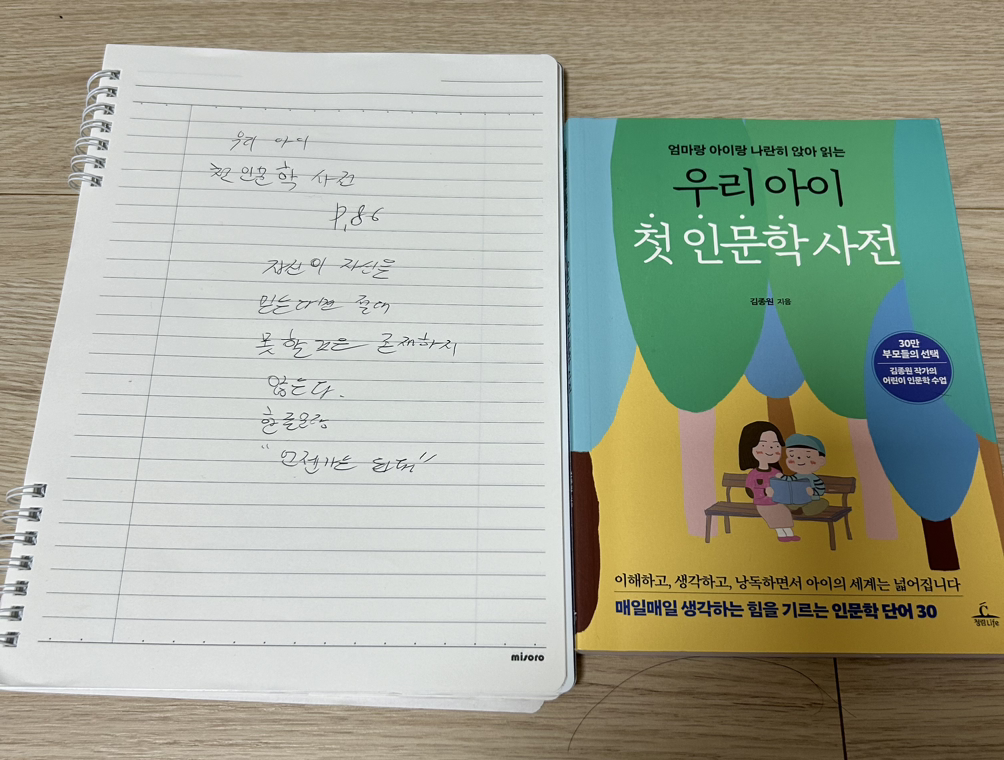 우리 아이
첫 인문학 사전
P.86
자신이 자신을
믿는다면 절대
못 할 것은 존재하지
않는다.
한줄요약
"언젠가는 된다"
misoro
엄마랑 아이랑 나란히 앉아 읽는
우리 아이
첫 인문학 사전
김종원 지음
30만
부모들의 선택
김종원 작가의
어린이 인문학 수업
이해하고, 생각하고, 낭독하면서 아이의 세계는 넓어집니다
매일매일 생각하는 힘을 기르는 인문학 단어 30
청림Life